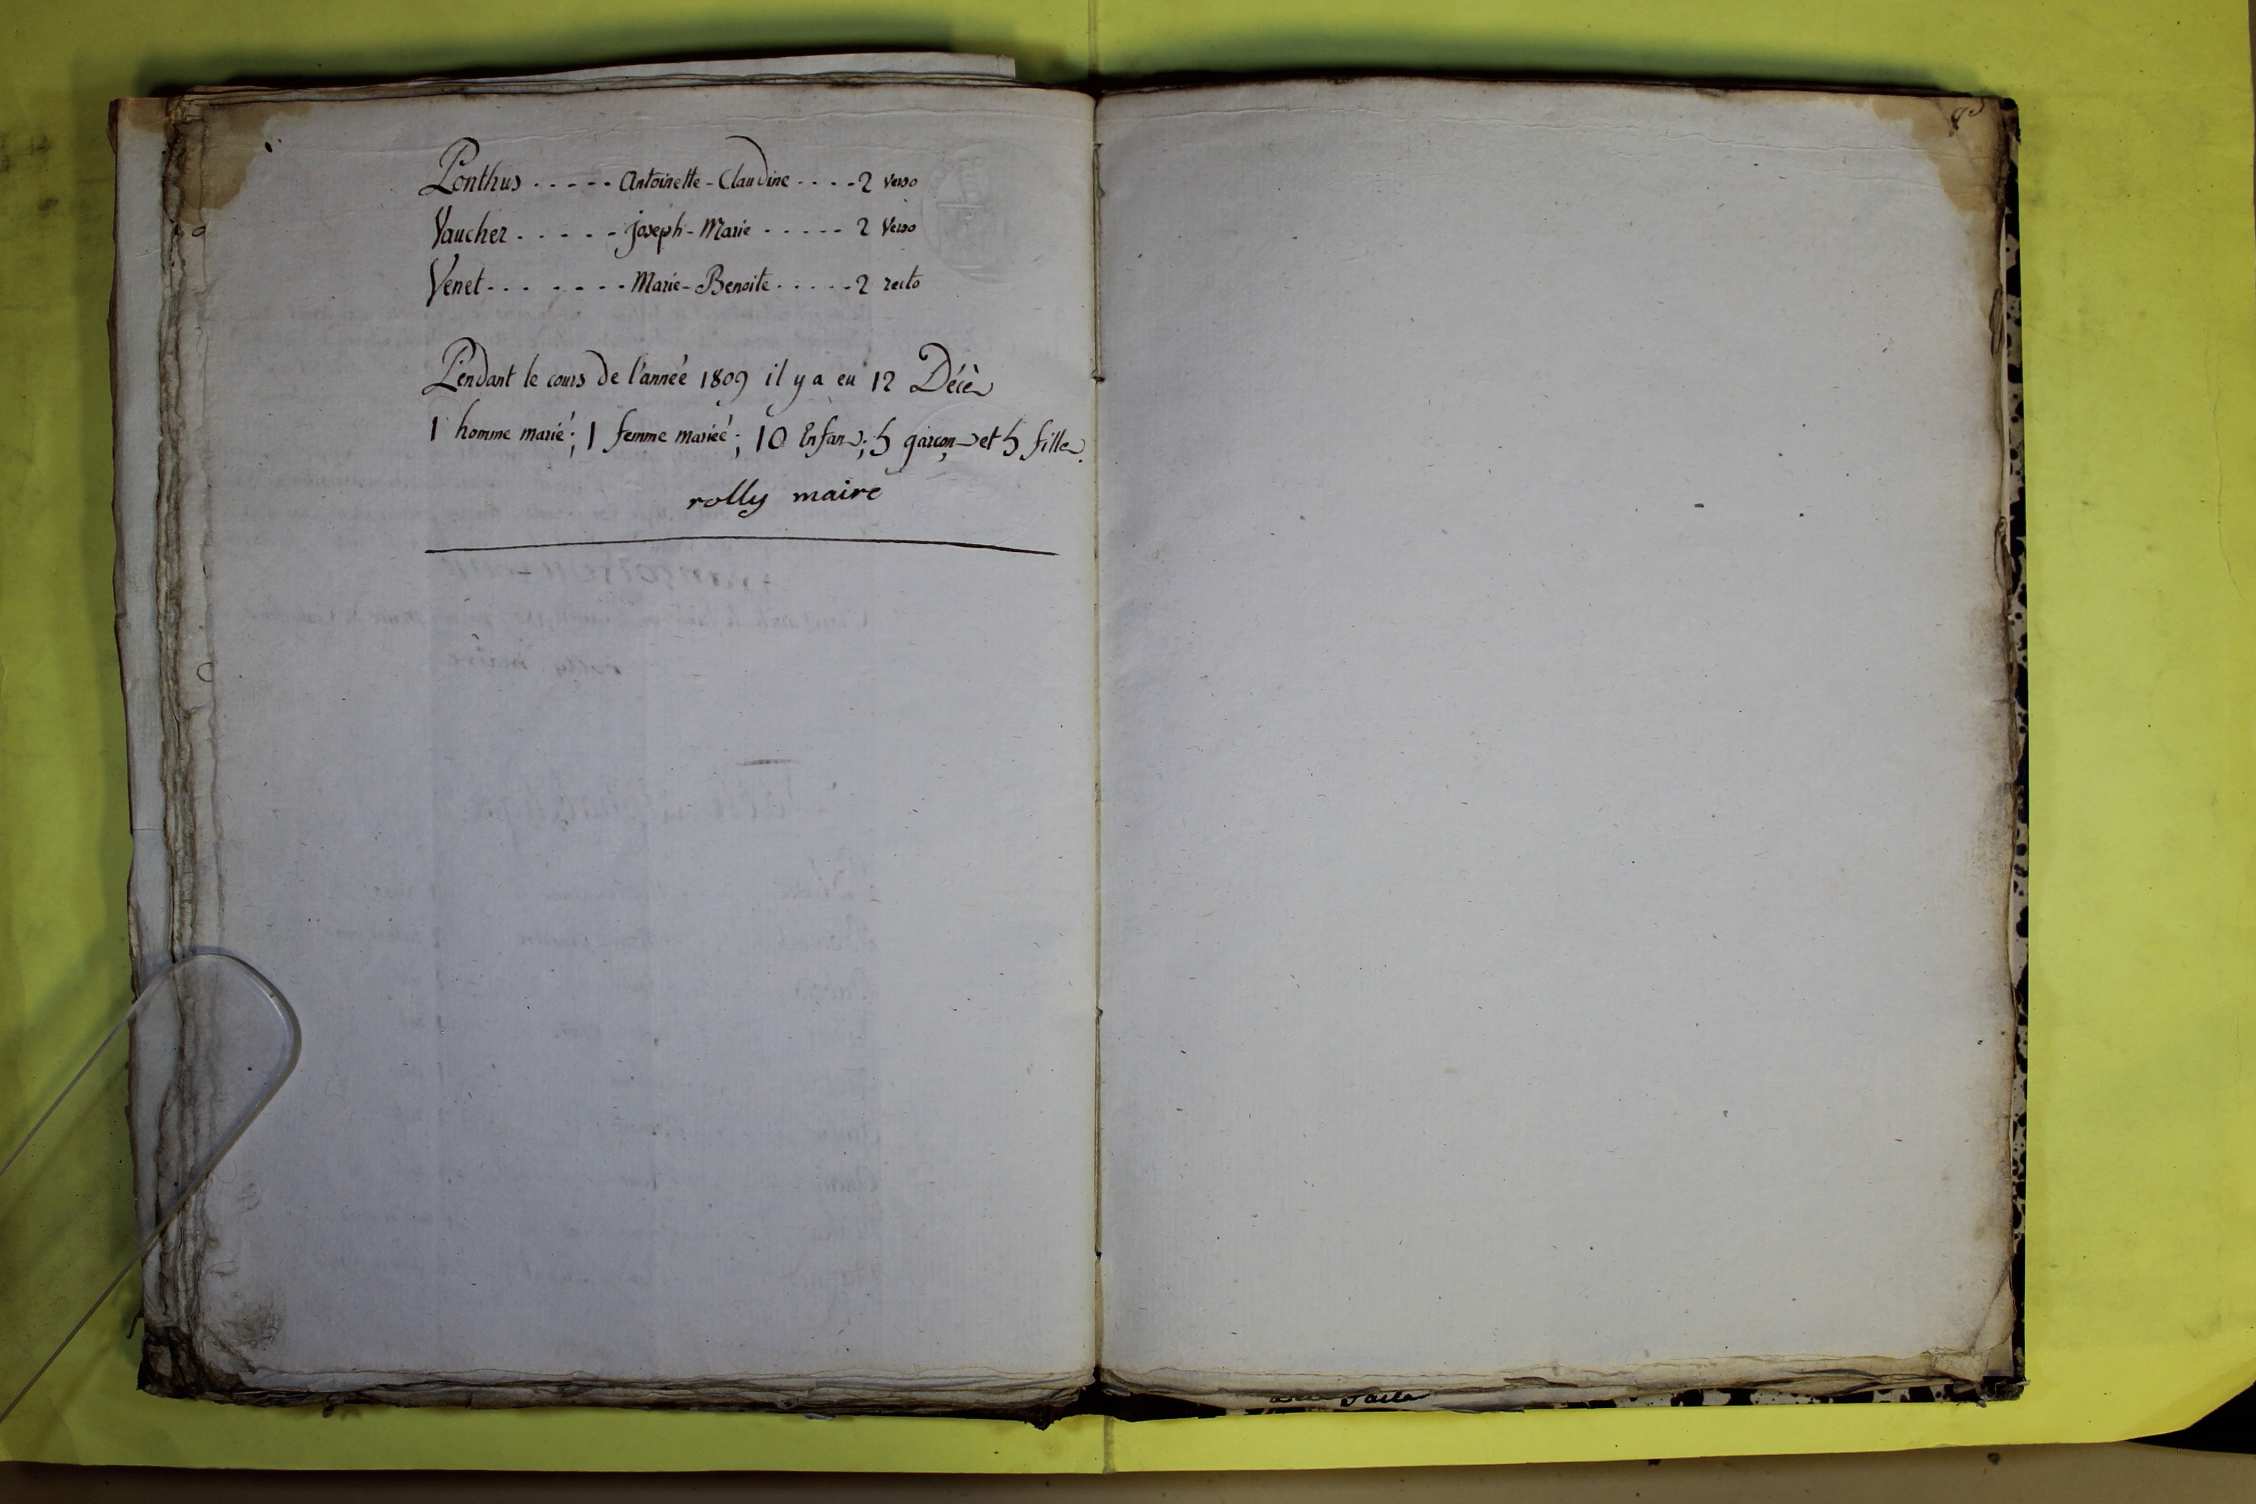 Ponthus - - - - - Antoinette-Claudine - - - - 2 verso
Vaucher - - - - - joseph-Marie - - - - - 2 verso
Venet - - - - - - - Marie-Benoite - - - - - 2 recto
Pendant le cours de l'année 1809 il y a eu 12 Décès
1 homme marié; 1 femme mariée; 10 Enfans; 5 garçons et 5 filles.
rolly maire